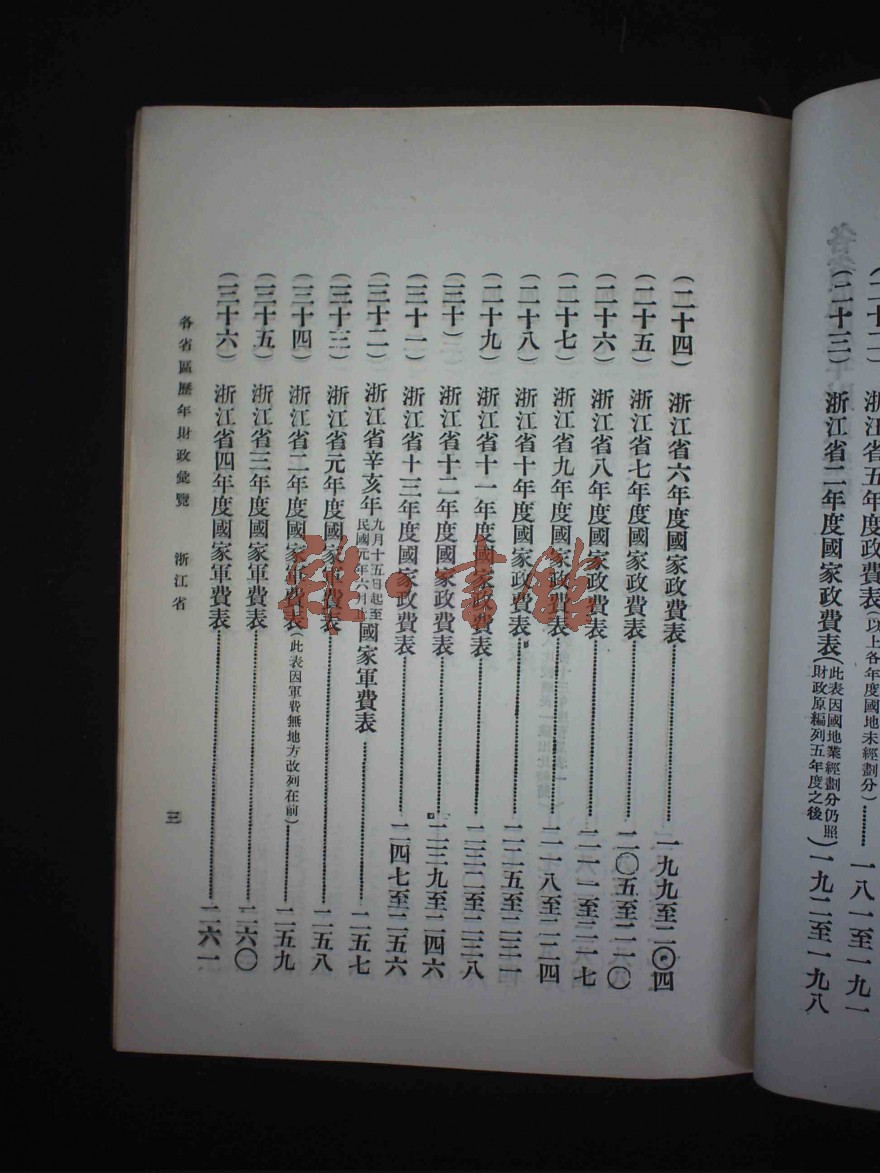 浙江省五年度國家政費表(以上各年度國地未經劃分)………一八一至一九一
(二十三) 浙江省二年度國家政費表(此表因國地業經劃分仍照財政原編列五年度之後)一九二至一九八
(二十四) 浙江省六年度國家政費表………一九九至二〇四
(二十五) 浙江省七年度國家政費表………二〇五至二一〇
(二十六) 浙江省八年度國家政費表………二一一至二一七
(二十七) 浙江省九年度國家政費表………二一八至二二四
(二十八) 浙江省十年度國家政費表………二二五至二三一
(二十九) 浙江省十一年度國家政費表………二三二至二三八
(三十) 浙江省十二年度國家政費表………二三九至二四六
(三十一) 浙江省十三年度國家政費表………二四七至二五六
(三十二) 浙江省辛亥年九月十五日起至民國元年六月止國家軍費表………二五七
(三十三) 浙江省元年度國家軍費表………二五八
(三十四) 浙江省二年度國家軍費表(此表因軍費無地方改列在前)………二五九
(三十五) 浙江省三年度國家軍費表………二六〇
(三十六) 浙江省四年度國家軍費表………二六一
各省區歷年財政彙覽 浙江省 三
雜·書館